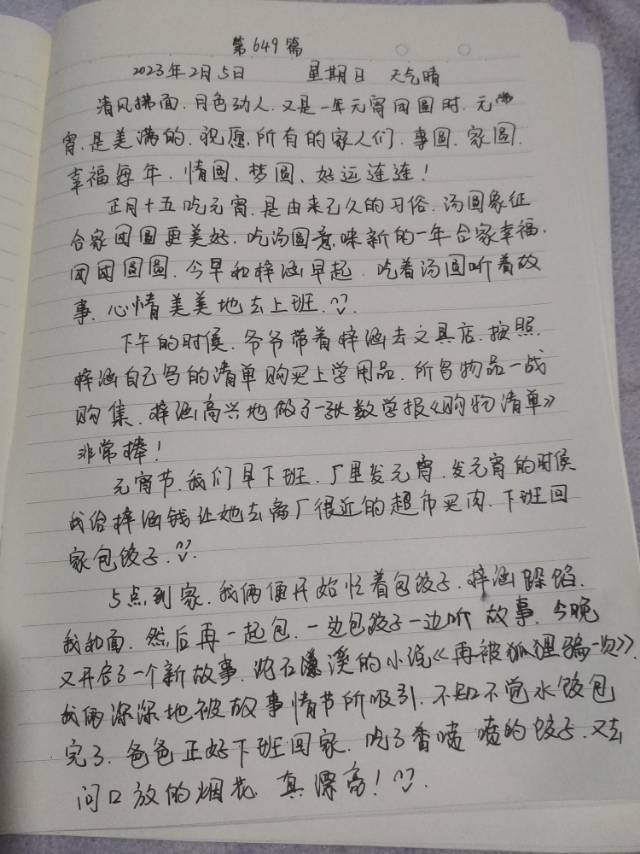 第649篇
2023年2月5日 星期日 天气晴
清风拂面,月色动人,又是一年元宵团圆时,元
宵,是美满的,祝愿所有的家人们,事圆、家圆、
幸福每年,情圆、梦圆、好运连连!
正月十五吃元宵,是由来已久的习俗,汤圆象征
合家团圆更美好,吃汤圆意味新的一年合家幸福,
团团圆圆,今早和梓涵早起,吃着汤圆听着故
事,心情美美地去上班,
下午的时候,爷爷带着梓涵去文具店,按照
梓涵自己写的清单购买上学用品,所多物品一战
购集,梓涵高兴地做了一张数学报《购物清单》
非常棒!
元宵节,我们早下班,厂里发元宵,发元宵的时候
我给梓涵钱让她去离厂很近的超市买肉,下班回
家包饺子,
5点到家,我俩便开始忙着包饺子,梓涵跺馅,
我和面,然后再一起包,一边包饺子一边听故事,今晚
又开启了一个新故事,沈石溪的小说《再被狐狸骗一次》,
我俩深深地被故事情节所吸引,不知不觉水饺包
完了,爸爸正好下班回家,吃了香喷喷的饺子,又去
门口放的烟花,真漂亮!